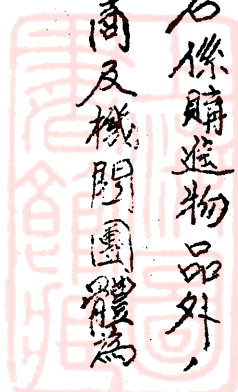 名係購進物品外，
商及機關團體為